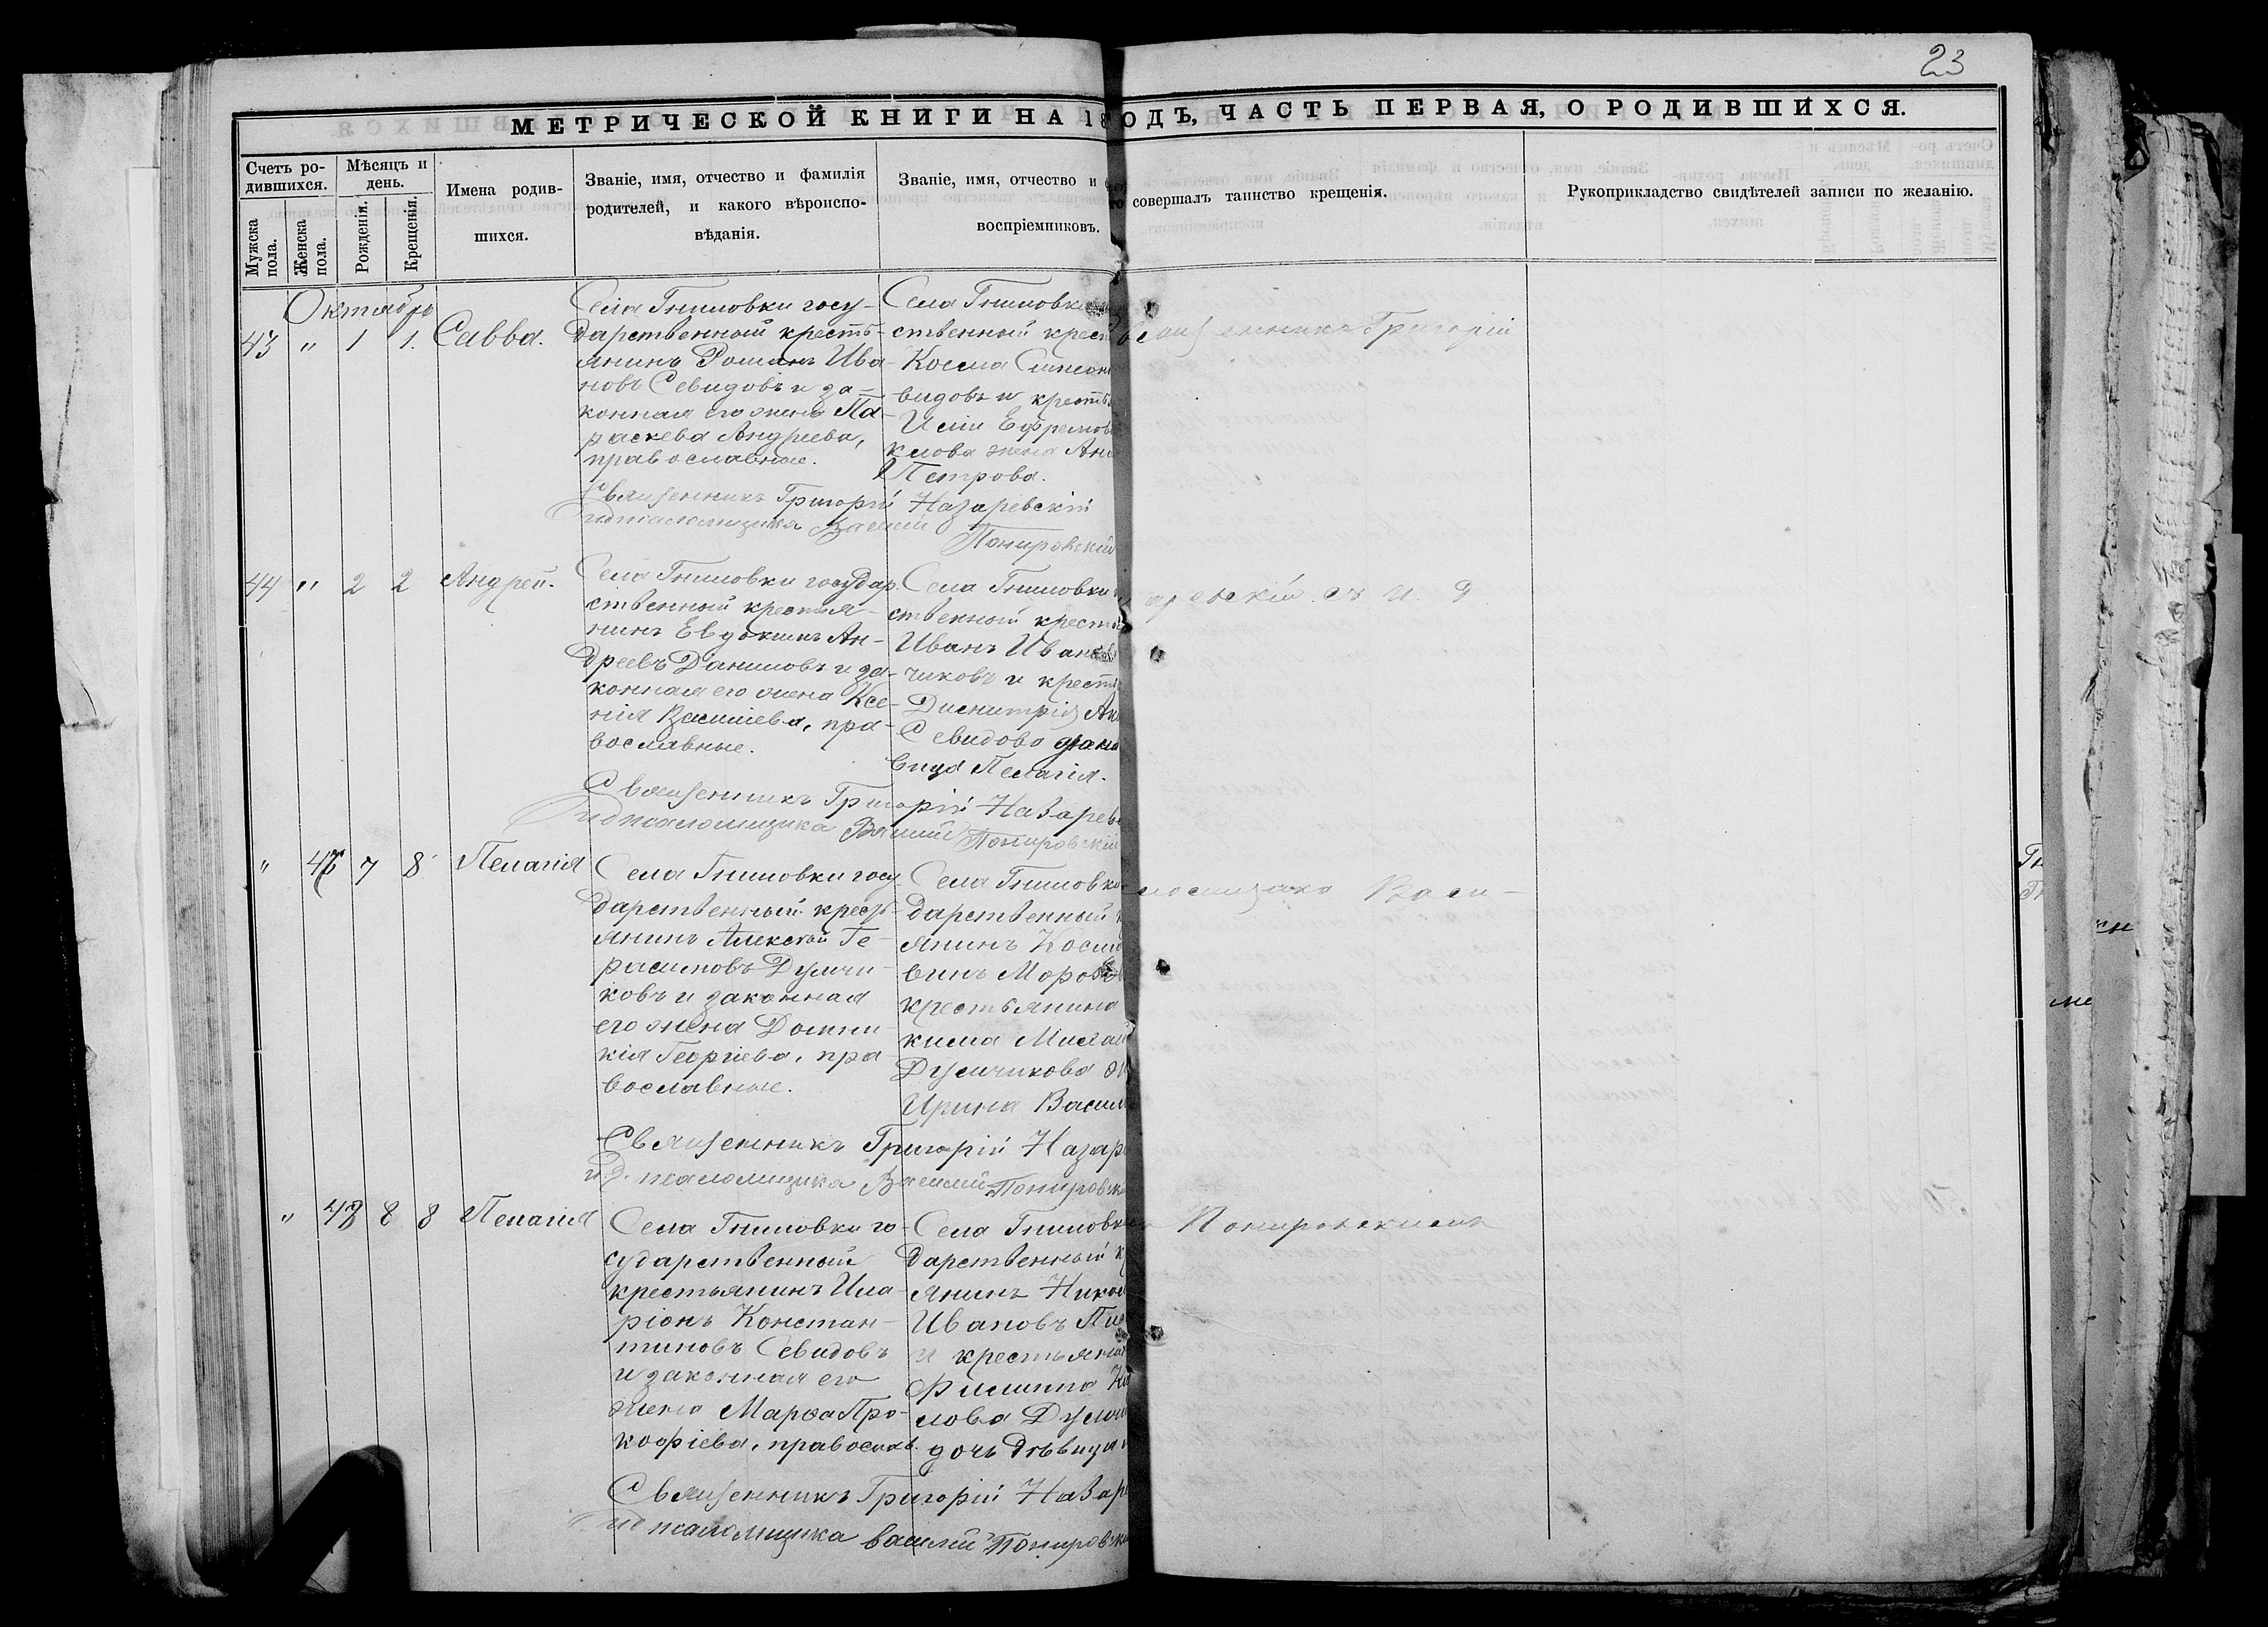 23
МЕТРИЧЕСКОЙ КНИГИ НА 18 ОДЪ, ЧАСТЬ ПЕРВАЯ, О РОДИВШИХСЯ.
Счетъ ро-
дившихся.
Мужска
пола.
Женска
пола.
Мѣсяцъ и
день.
Рожденія.
Крещенія.
Имена родив-
шихся.
Званіе, имя, отчество и фамилія
родителей, и какого вѣроиспо-
вѣданія.
Званіе, имя, отчество и
воспріемниковъ.
совершалъ таинство крещенія.
Рукоприкладство свидѣтелей записи по желанію.
Октябрь
43 " 1 1. Савва.
Села Гниловки госу-
дарственный кресть-
янинъ Романъ Ива-
новъ Севидовъ и за-
конная его жена Па-
раскева Андреева,
православные.
Села Гниловки
ственный крест
Косма Симеон
видовъ и кресть
Ефремов
клова жена Ан
Петрова.
Священникъ Григорій
Священникъ Григорій Назаревскій
и д псаломщика Василій
Понировскій
44 " 2 2 Андрей.
Села Гниловки государ-
ственный крестья-
нинъ Евдокимъ Ан-
дреевъ Даниловъ и за-
конная его жена Ксе-
нія Васильева, пра-
вославные.
Села Гниловки
ственный кресть
Иванъ Иванов
чиковъ и кресть
Димитрія
Севидова
вица Пелагія.
аревскій съ и. д
Священникъ Григорій Назарев
и д псаломщика Василій Понировскій
" 47 7 8 Пелагія
Села Гниловки госу-
дарственный кресть-
янинъ Алексѣй Ге-
расимовъ Думчи-
ковъ и законная
его жена Домни-
кія Георгіева, пра-
вославные.
Села Гниловки
дарственный к
янинъ Косма
винъ Мороз
крестьянина
кима Михаи
Думчикова
Ирина Васил
псаломщика Васи-
Священникъ Григорій Назар
и д. псаломщика Василій Понировск
" 48 8 8 Пелагія
Села Гниловки го-
сударственный
крестьянинъ Ила-
ріонъ Констан-
тиновъ Севидовъ
и законная его
жена Марѳа Про-
кофіева, православ.
Села Гниловки
дарственный к
янинъ Никол
Ивановъ
и крестьянин
Филиппа
лова Думчи
дочь дѣвица
Понировскимъ
Священникъ Григорій Назар
и д псаломщика Василій Понировск